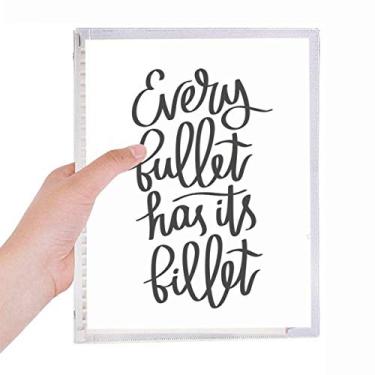 Every
bullet
has its
billet